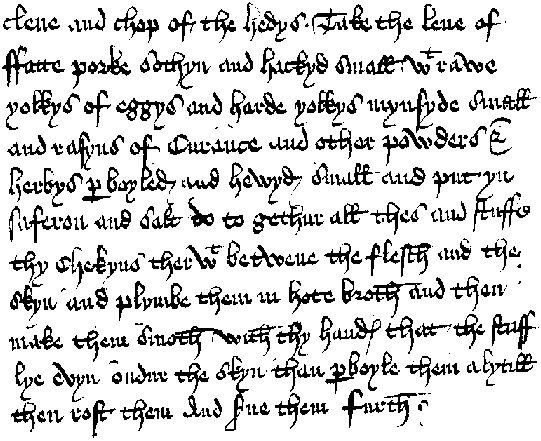 clene and chop of the hedys Take the lene of
ffatte porke sothyn and hackyd small wᵗ rawe
yolkys of eggys and harde yolkys mynsyde small
and rasyns of Curance and other powders &
herbys ꝑboyled and hewyd small and put yn
saferon and salt do to gethur all thes and stuffe
thy chekyns therwᵗ betwene the flesch and the
skyn and plumbe them in hote broth and then
make them smoth with thy hand that the stuff
lye evyn ondur the skyn than ꝑboyle them a lytill
then rost them And serue them furth